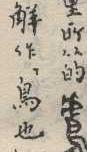 里所以的書
解作、鳥也